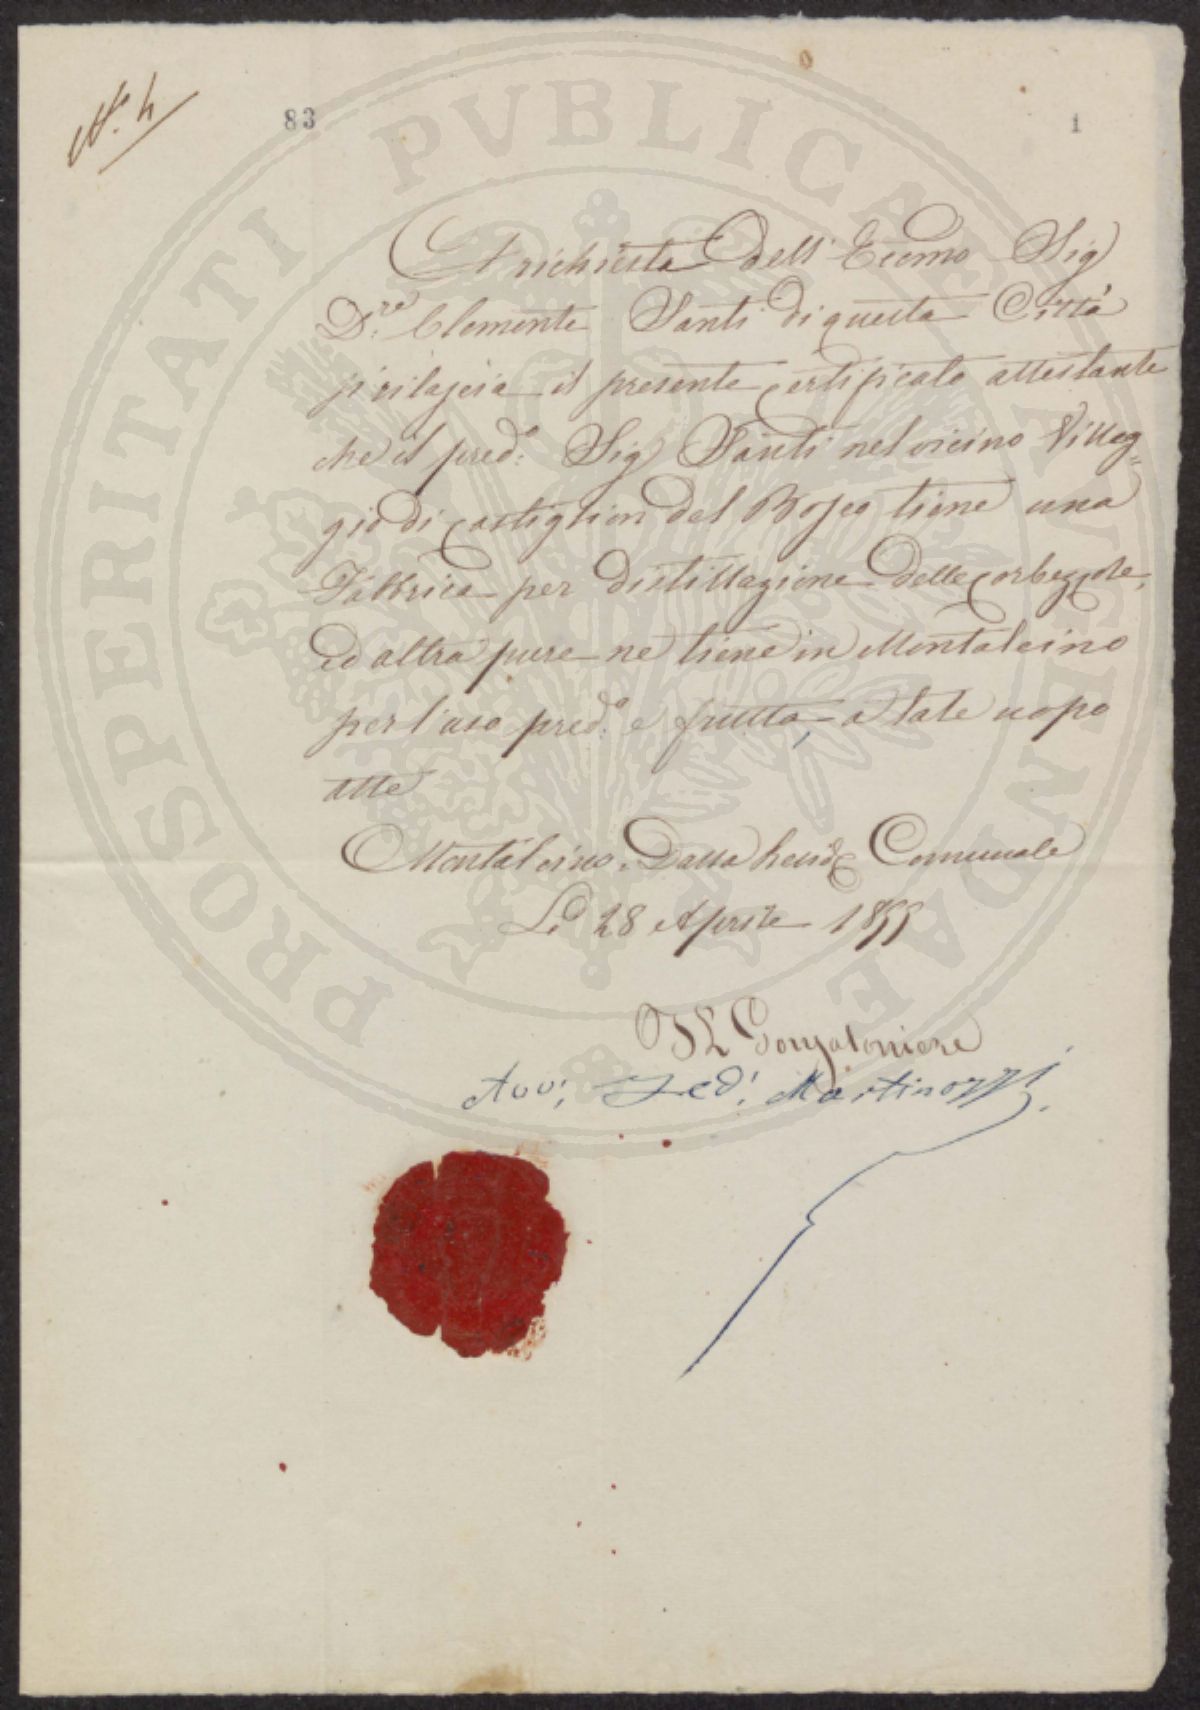 N.º 4
83
1
A richiesta dell' Ecc:mo Sig
D.re Clemente Santi di questa Città
si rilascia il presente certificato attestante
che il pred:º Sig Santi nel vicino Villag=
gio di Castiglion del Bosco tiene una
Fabbrica per distillazione delle corbezzole,
ed altra pure ne tiene in Montalcino
per l'uso pred:º e frutta, a tale uopo
atte
Montalcino. Dalla Resid Comunale
Li 28 Aprile 1855
IL Gonfaloniere
Avv: Fed: Martinozzi
PROSPERITATI PVBLICAE AVGENDAE